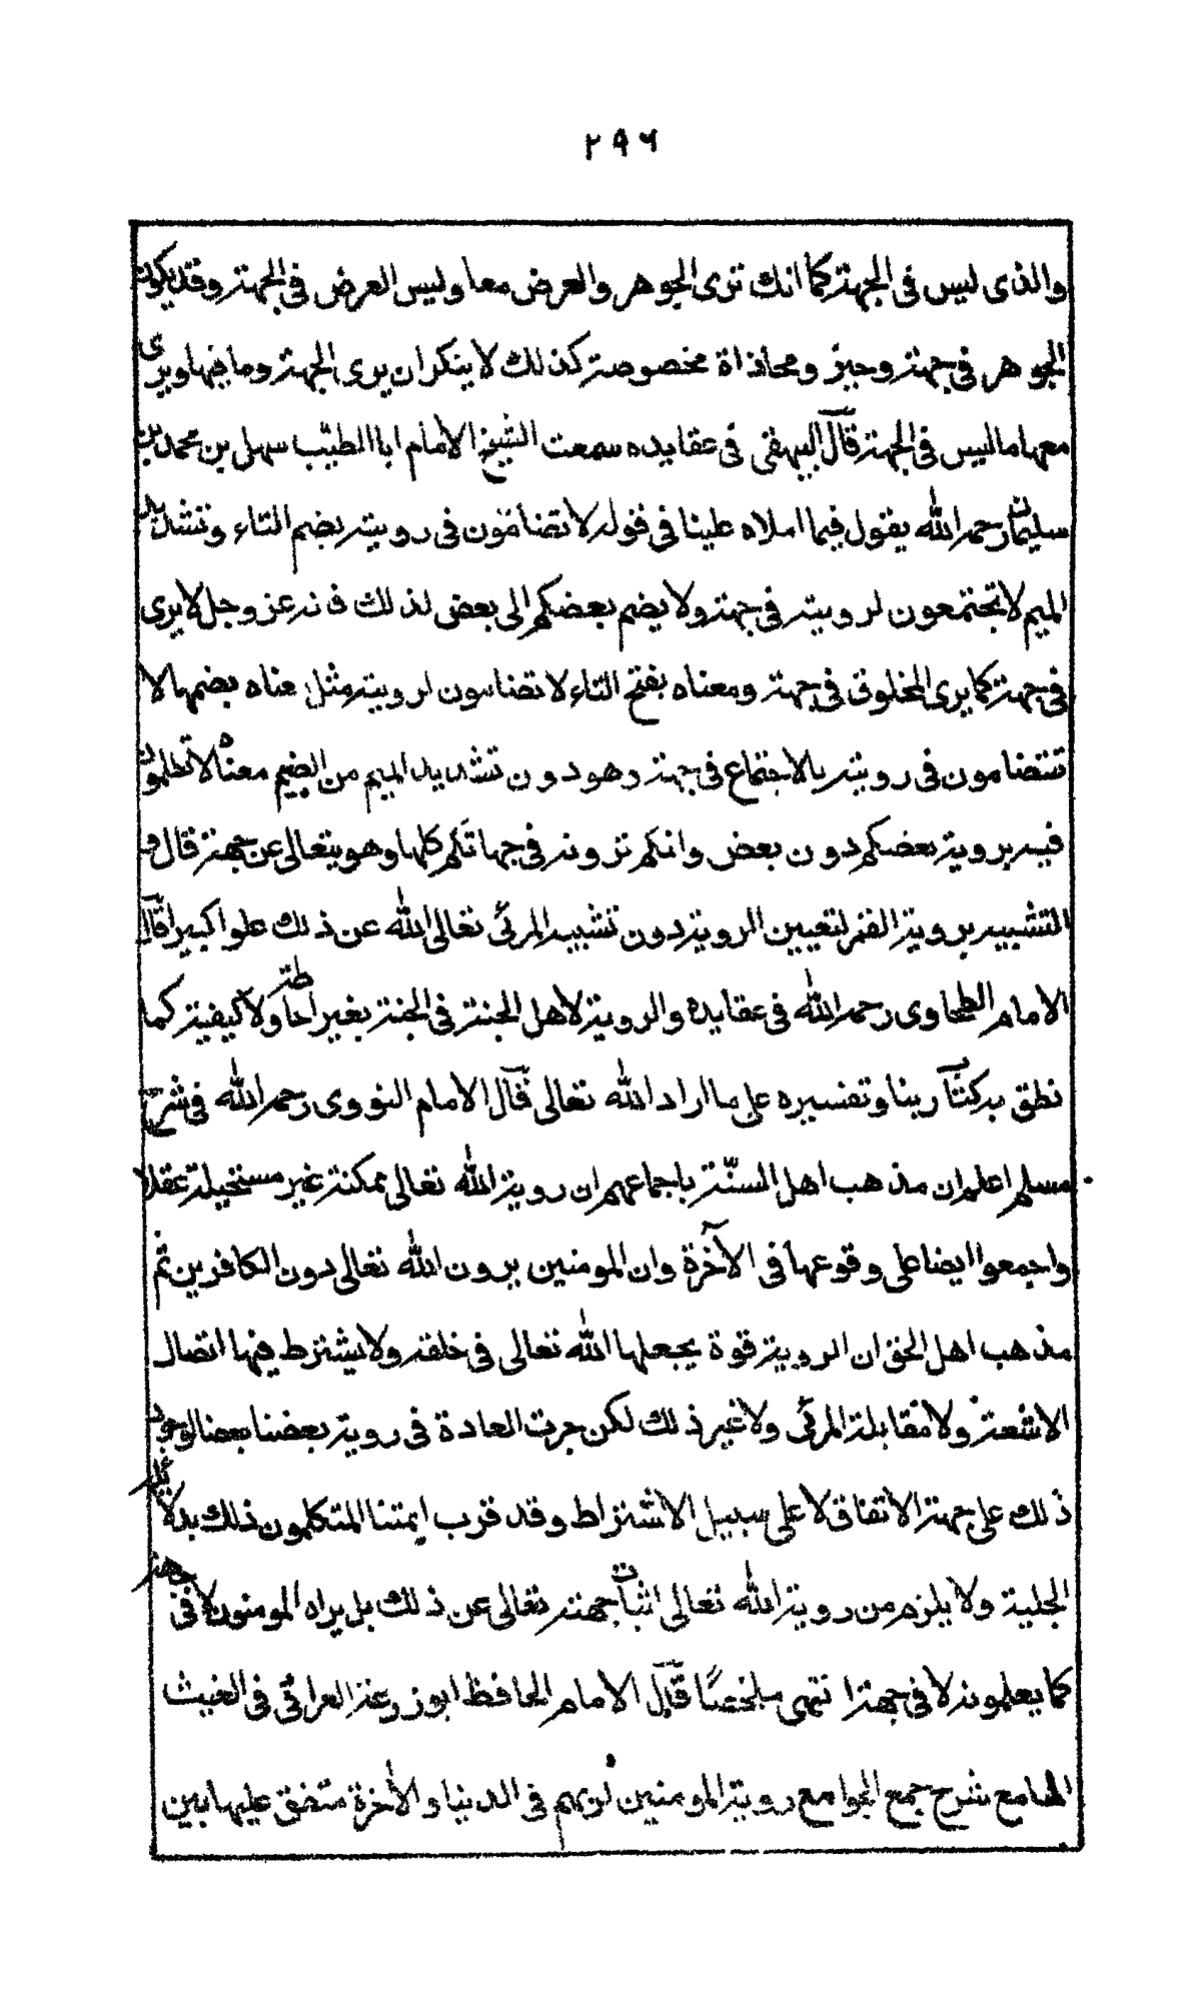 ٢٩٦
والذى ليس فى الجهة كما انك ترى الجوهر والعرض معا وليس العرض فى الجهة وقد يكون
الجوهر فى جهة وحيز ومحاذاة مخصوصة كذلك لا ينكر ان يرى الجهة وما فيها ويرى
معها ما ليس فى الجهة قال البيهقى فى عقايده سمعت الشيخ الامام ابا الطيب سهل بن محمد بن
سليمان رحمه الله يقول فيما املاه علينا فى قوله لا تضامّون فى رويته بضم التاء وتشديد
الميم لا تجتمعون لرويته فى جهة ولا يضم بعضكم الى بعض لذلك فانه عز وجل لا يرى
فى جهة كما يرى المخلوق فى جهة ومعناه بفتح التاء لا تضامون لرويته مثل معناه بضمها لا
تتضامون فى رويته بالاجتماع فى جهة وهو دون تشديد الميم من الضيم معناه لا تظلمون
فيه بروية بعضكم دون بعض وانكم ترونه فى جهاتكم كلها وهو يتعالى عن جهة قال و
التشبيه بروية القمر لتعيين الروية دون تشبيه المرئى تعالى الله عن ذلك علوا كبيرا قال
الامام الطحاوى رحمه الله فى عقايده والروية لاهل الجنة فى الجنة بغير احاطة ولا كيفية كما
نطق به كتاب ربنا وتفسيره على ما اراد الله تعالى قال الامام النووى رحمه الله فى شرح
مسلم اعلم ان مذهب اهل السنّة باجماعهم ان روية الله تعالى ممكنة غير مستحيلة عقلا
واجمعوا ايضا على وقوعها فى الآخرة وان المومنين يرون الله تعالى دون الكافرين ثم
مذهب اهل الحق ان الروية قوة يجعلها الله تعالى فى خلقه ولا يشترط فيها اتصال
الاشعة ولا مقابلة المرئى ولا غير ذلك لكن جرت العادة فى روية بعضنا بعضا لوجود
ذلك على جهة الاتفاق لا على سبيل الاشتراط وقد قرب ايمتنا المتكلمون ذلك بدلائله
الجلية ولا يلزم من روية الله تعالى اثبات جهة تعالى عن ذلك بل يراه المومنون لا فى جهة
كما يعلمونه لا فى جهة انتهى ملخصًا قال الامام الحافظ ابو زرعة العراقى فى الغيث
الهامع شرح جمع الجوامع روية المومنين لربهم فى الدنيا والآخرة متفق عليها بين